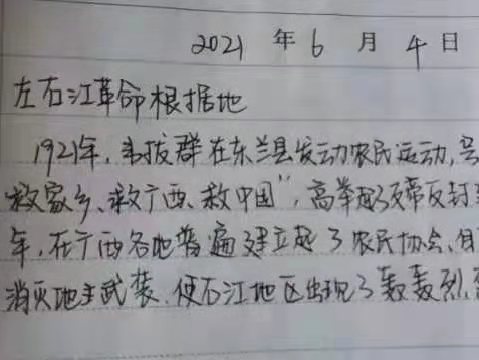 2021 年 6 月 4 日
左右江革命根据地
1921年,韦拔群在东兰县发动农民运动,号
救家乡、救广西、救中国",高举起了反帝反封
年,在广西各地普遍建立起了农民协会、自
消灭地主武装,使右江地区出现了轰轰烈